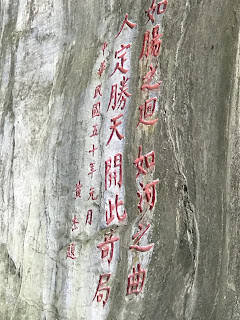 如腸之迴 如河之曲
人定勝天 開此奇局
中華民國五十年元月
黃杰題